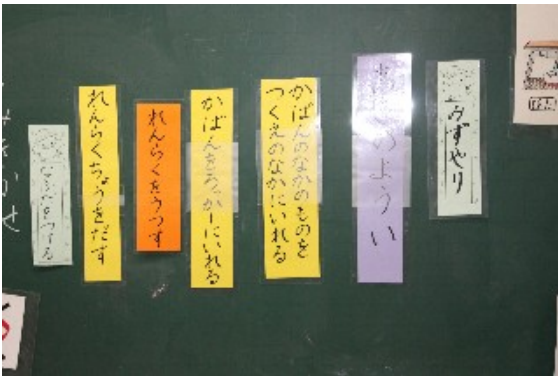 みずやり
のようい
かばんのなかのものを
つくえのなかにいれる
かばんをろっかーにいれる
れんらくをうつす
れんらくちょうをだす